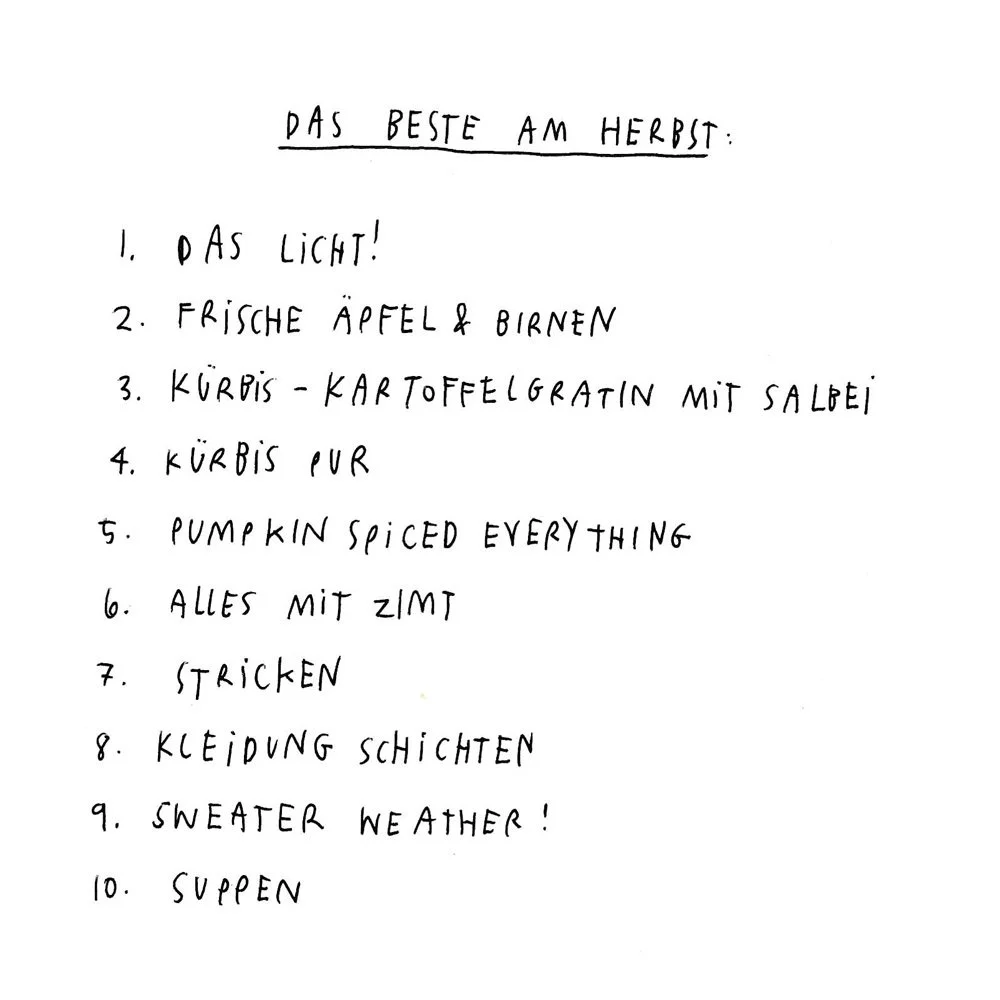 DAS BESTE AM HERBST:
1. DAS LICHT!
2. FRISCHE ÄPFEL & BIRNEN
3. KÜRBIS - KARTOFFELGRATIN MIT SALBEI
4. KÜRBIS PUR
5. PUMPKIN SPICED EVERYTHING
6. ALLES MIT ZIMT
7. STRICKEN
8. KLEIDUNG SCHICHTEN
9. SWEATER WEATHER!
10. SUPPEN